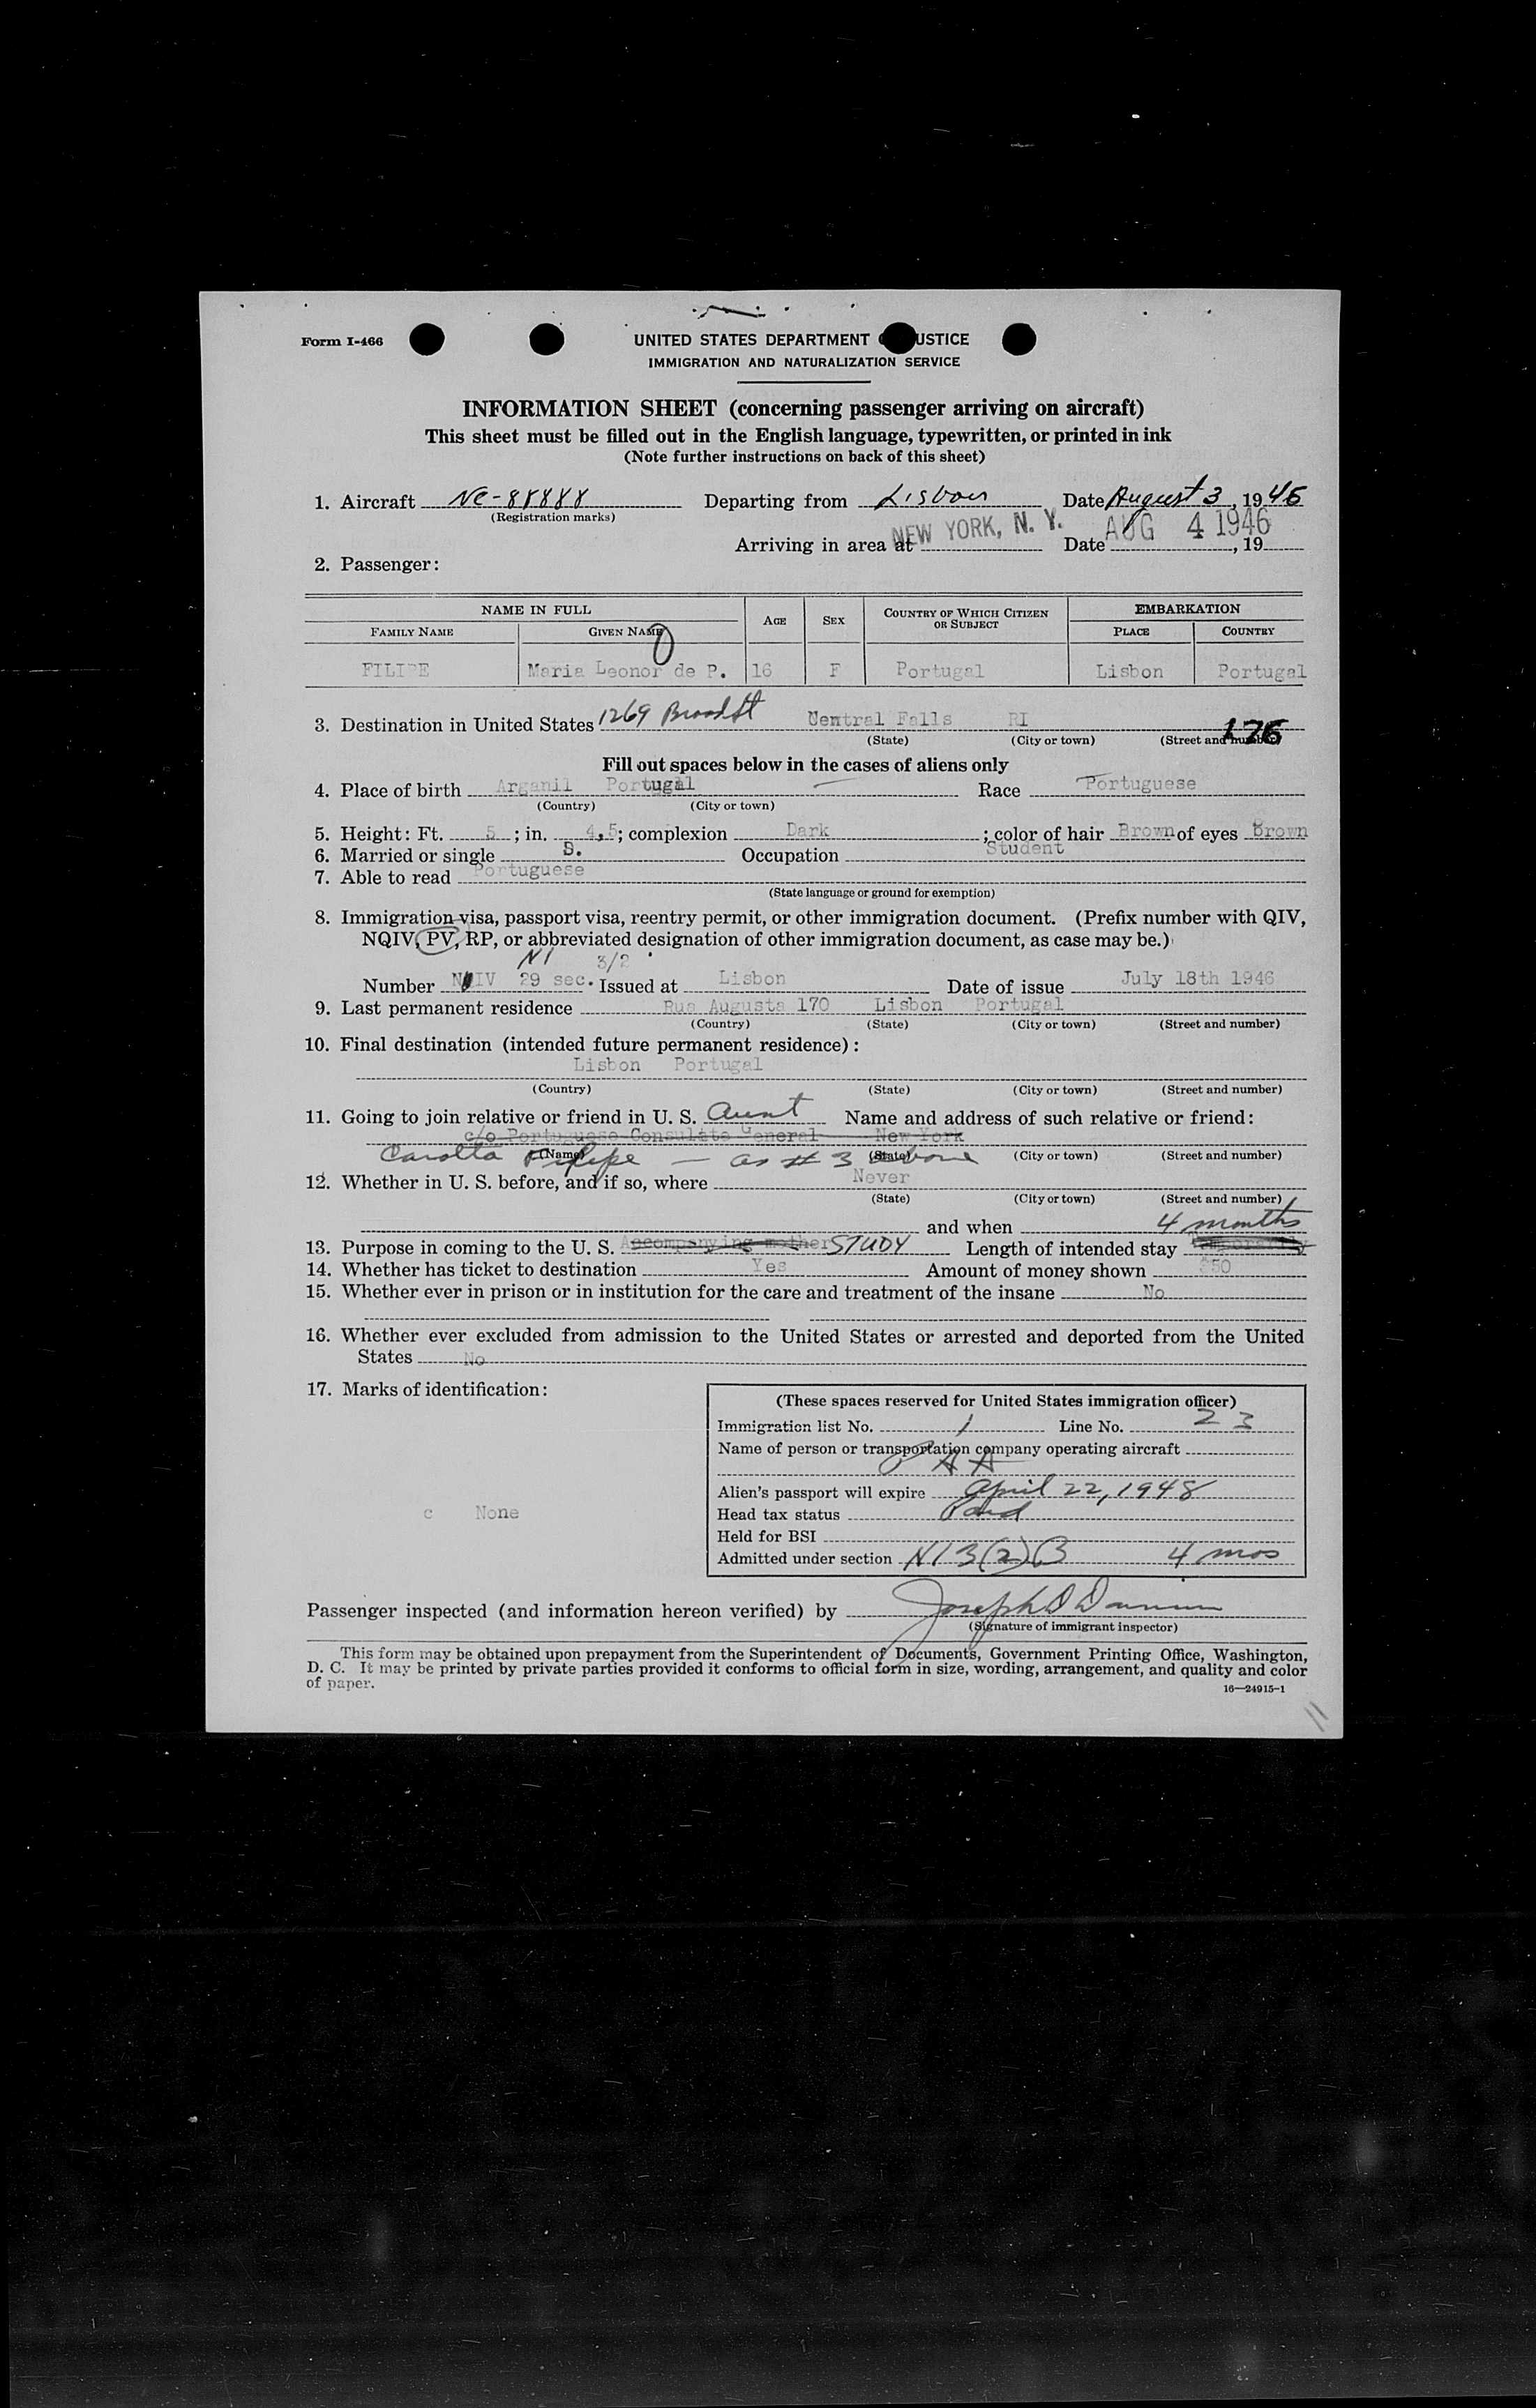 Form I-466
UNITED STATES DEPARTMENT O USTICE
IMMIGRATION AND NATURALIZATION SERVICE
INFORMATION SHEET (concerning passenger arriving on aircraft)
This sheet must be filled out in the English language, typewritten, or printed in ink
(Note further instructions on back of this sheet)
1. Aircraft NC-88888 Departing from Lisbon Date August 3, 1946
(Registration marks)
Arriving in area at NEW YORK, N. Y. Date AUG 4 1946, 19
2. Passenger:
NAME IN FULL AGE SEX COUNTRY OF WHICH CITIZEN OR SUBJECT EMBARKATION
FAMILY NAME GIVEN NAME PLACE COUNTRY
FILIPE Maria Leonor de P. 16 F Portugal Lisbon Portugal
3. Destination in United States 1269 Broad St Central Falls RI 176
(State) (City or town) (Street and number)
Fill out spaces below in the cases of aliens only
4. Place of birth Arganil Portugal Race Portuguese
(Country) (City or town)
5. Height: Ft. 5; in. 4,5; complexion Dark; color of hair Brown of eyes Brown
6. Married or single S. Occupation Student
7. Able to read Portuguese
(State language or ground for exemption)
8. Immigration visa, passport visa, reentry permit, or other immigration document. (Prefix number with QIV,
NQIV, PV, RP, or abbreviated designation of other immigration document, as case may be.)
NI 3/2
Number IV 29 sec. Issued at Lisbon Date of issue July 18th 1946
9. Last permanent residence Rua Augusta 170 Lisbon Portugal
(Country) (State) (City or town) (Street and number)
10. Final destination (intended future permanent residence):
Lisbon Portugal
(Country) (State) (City or town) (Street and number)
11. Going to join relative or friend in U. S. Aunt Name and address of such relative or friend:
c/o Portuguese Consulate General New York
(Name) (State) (City or town) (Street and number)
Carolta Filipe — as # 3 above
12. Whether in U. S. before, and if so, where Never
(State) (City or town) (Street and number)
and when
4 months
13. Purpose in coming to the U. S. Accompanying mother STUDY Length of intended stay
14. Whether has ticket to destination Yes Amount of money shown $50
15. Whether ever in prison or in institution for the care and treatment of the insane No
16. Whether ever excluded from admission to the United States or arrested and deported from the United
States No
17. Marks of identification:
c None
(These spaces reserved for United States immigration officer)
Immigration list No. 1 Line No. 23
Name of person or transportation company operating aircraft
PAA
Alien's passport will expire April 22, 1948
Head tax status Paid
Held for BSI
Admitted under section NI 3(2) B 4 mos
Passenger inspected (and information hereon verified) by Joseph D
(Signature of immigrant inspector)
This form may be obtained upon prepayment from the Superintendent of Documents, Government Printing Office, Washington,
D. C. It may be printed by private parties provided it conforms to official form in size, wording, arrangement, and quality and color
of paper.
16—24915-1